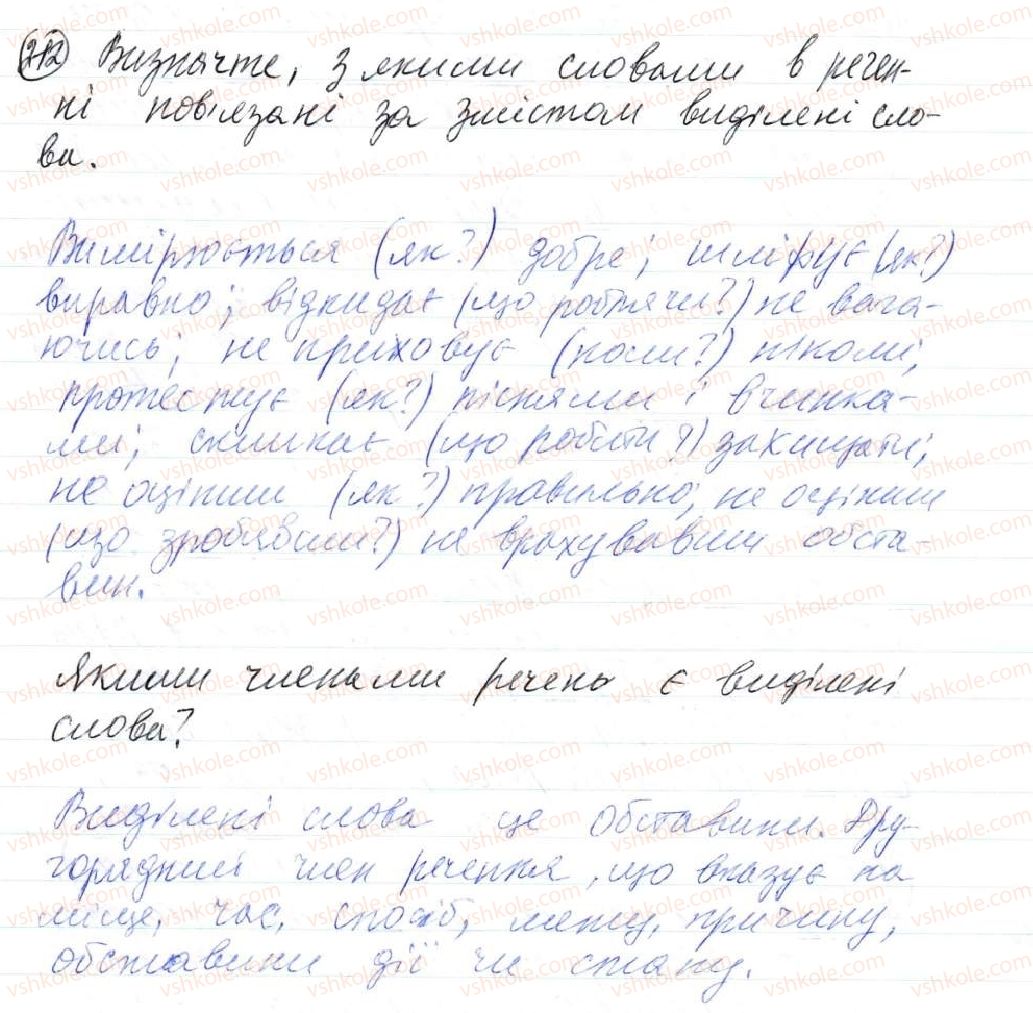 212 Визначте, з якими словами в речен-
ні пов'язані за змістом виділені сло-
ва.
Вимірюється (як?) добре; шліфує (як?)
виравно; відкидає (що роблячи?) не вага-
ючись; не приховує (коли?) ніколи;
протестує (як?) піснями і вчинка-
ми; скликає (що робити?) захищати;
не оцінили (як?) правильно; не оцінили
(що зробивши?) не врахувавши обста-
вин.
Якими членами речень є виділені
слова?
Виділені слова це обставини. Дру-
горядний член речення, що вказує на
місце, час, спосіб, межу, причину,
обставини дії чи стану.